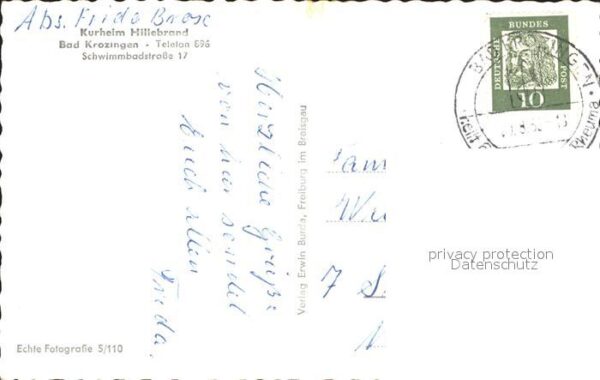 Abs. Frida
Kurheim Hillebrand
Bad Krozingen - Telefon 696
Schwimmbadstraße 17
Herzliche Grüße
von hier sendet
Euch allen
Frida.
Verlag Erwin Burda, Freiburg im Breisgau
Echte Fotografie S/110
DEUTSCHE BUNDES POST
10
BAD KROZINGEN
heilt
Rheuma
Fam
7
privacy protection
Datenschutz